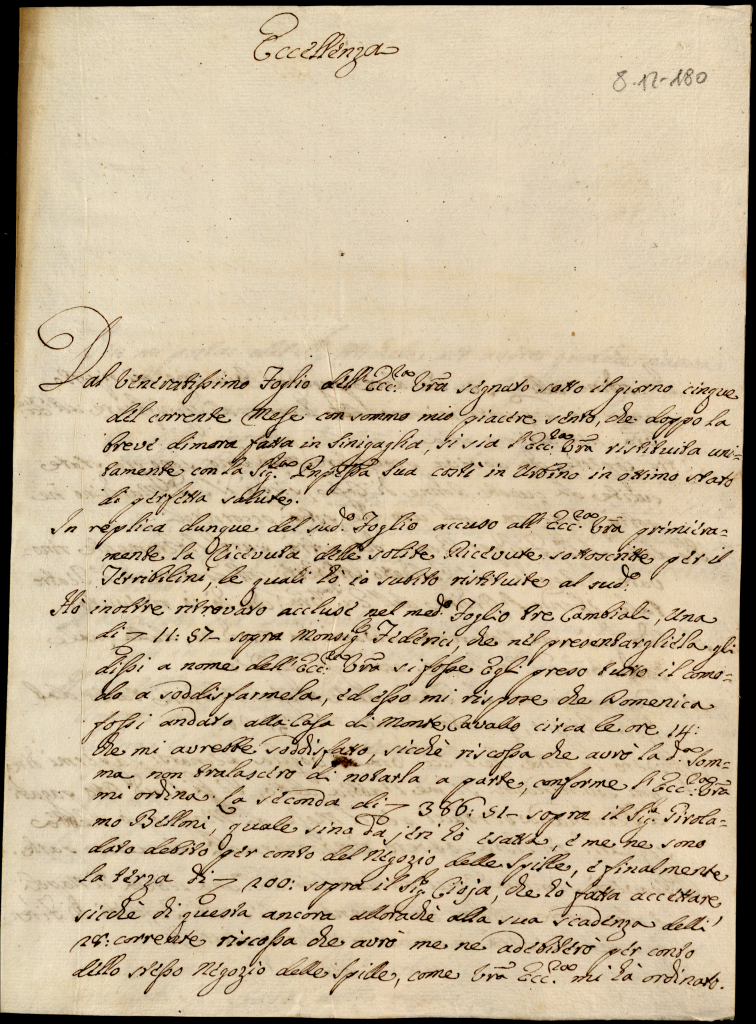 Eccellenza
8-12-180
Dal Veneratissimo Foglio dell'Ecc:za Vrã segnato sotto il giorno cinque
del corrente Mese con sommo mio piacere sento, che doppo la
breve dimora fatta in Sinigaglia, si sia l'Ecc:za Vrã ristituita uni=
tamente con la Sig:ra Pnpessa Sua costì in Urbino in ottimo stato
di perfetta salute.
In replica dunque del sud:o Foglio accuso all'Ecc:za Vrã primiera=
mente la Ricevuta delle solite Ricevute sottoscritte per il
Terribilini, le quali hò io subito ristituite al sud:o
Hò inoltre ritrovato accluse nel med:o Foglio tre Cambiali, Una
di 11: 57 sopra Monsig:r Federici, che nel presentargliela gli
dissi a nome dell'Ecc:za Vrã si fosse Egli preso tutto il como=
do a soddisfarmela, ed esso mi rispose che Domenica
fossi andato alla Casa di Monte Cavallo circa le ore 14:
che mi avrebbe soddisfatto, sicchè riscossa che avrò la d:a Som=
ma non tralascerò di notarla a parte, conforme l'Ecc:za Vrã
mi ordina. La seconda di 386: 51 sopra il Sig:r Girola=
mo Belloni, quale sino da jeri hò esatta, e me ne sono
dato debito per conto del Negozio delle Spille, e finalmente
la terza di 200: sopra il Sig:r Cioja, che hò fatta accettare,
sicchè di questa ancora allorachè alla sua scadenza delli
28: corrente riscossa che avrò me ne adebiterò per conto
dello stesso Negozio delle Spille, come Vrã Ecc:za mi hà ordinato.